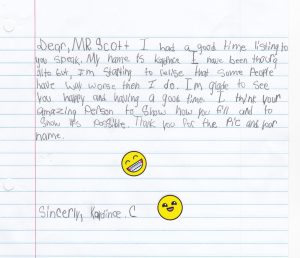 Dear, MR. Scott I had a good time listing to
you speak. My name is I have been throug
alto but, I'm starting to relise that some People
have way worse then I do. I'm glade to see
you happy and having a good time. I think your
amazing Person to show how you fill and to
show its possible. Thank you for the Pic and your
name.
Sincerly, C